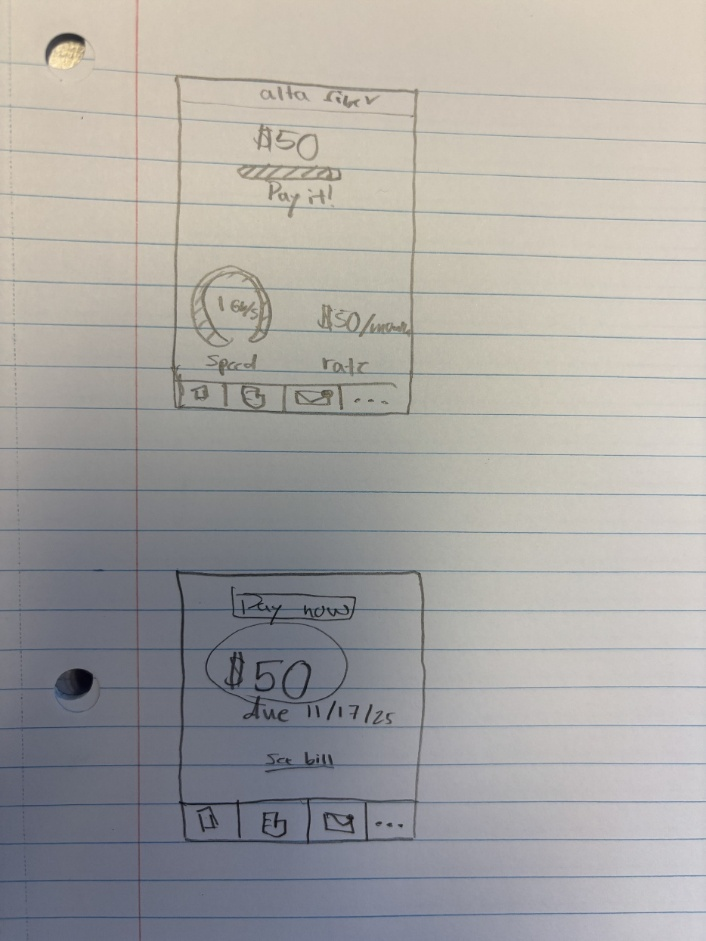 alta fiber
$50
Pay it!
1 Gb/s
$50/month
speed
rate
...
Pay now
$50
due 11/17/25
see bill
...